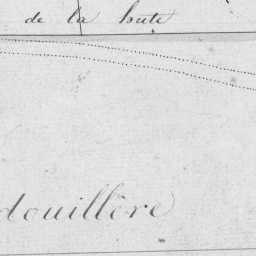 de la hute
douillère